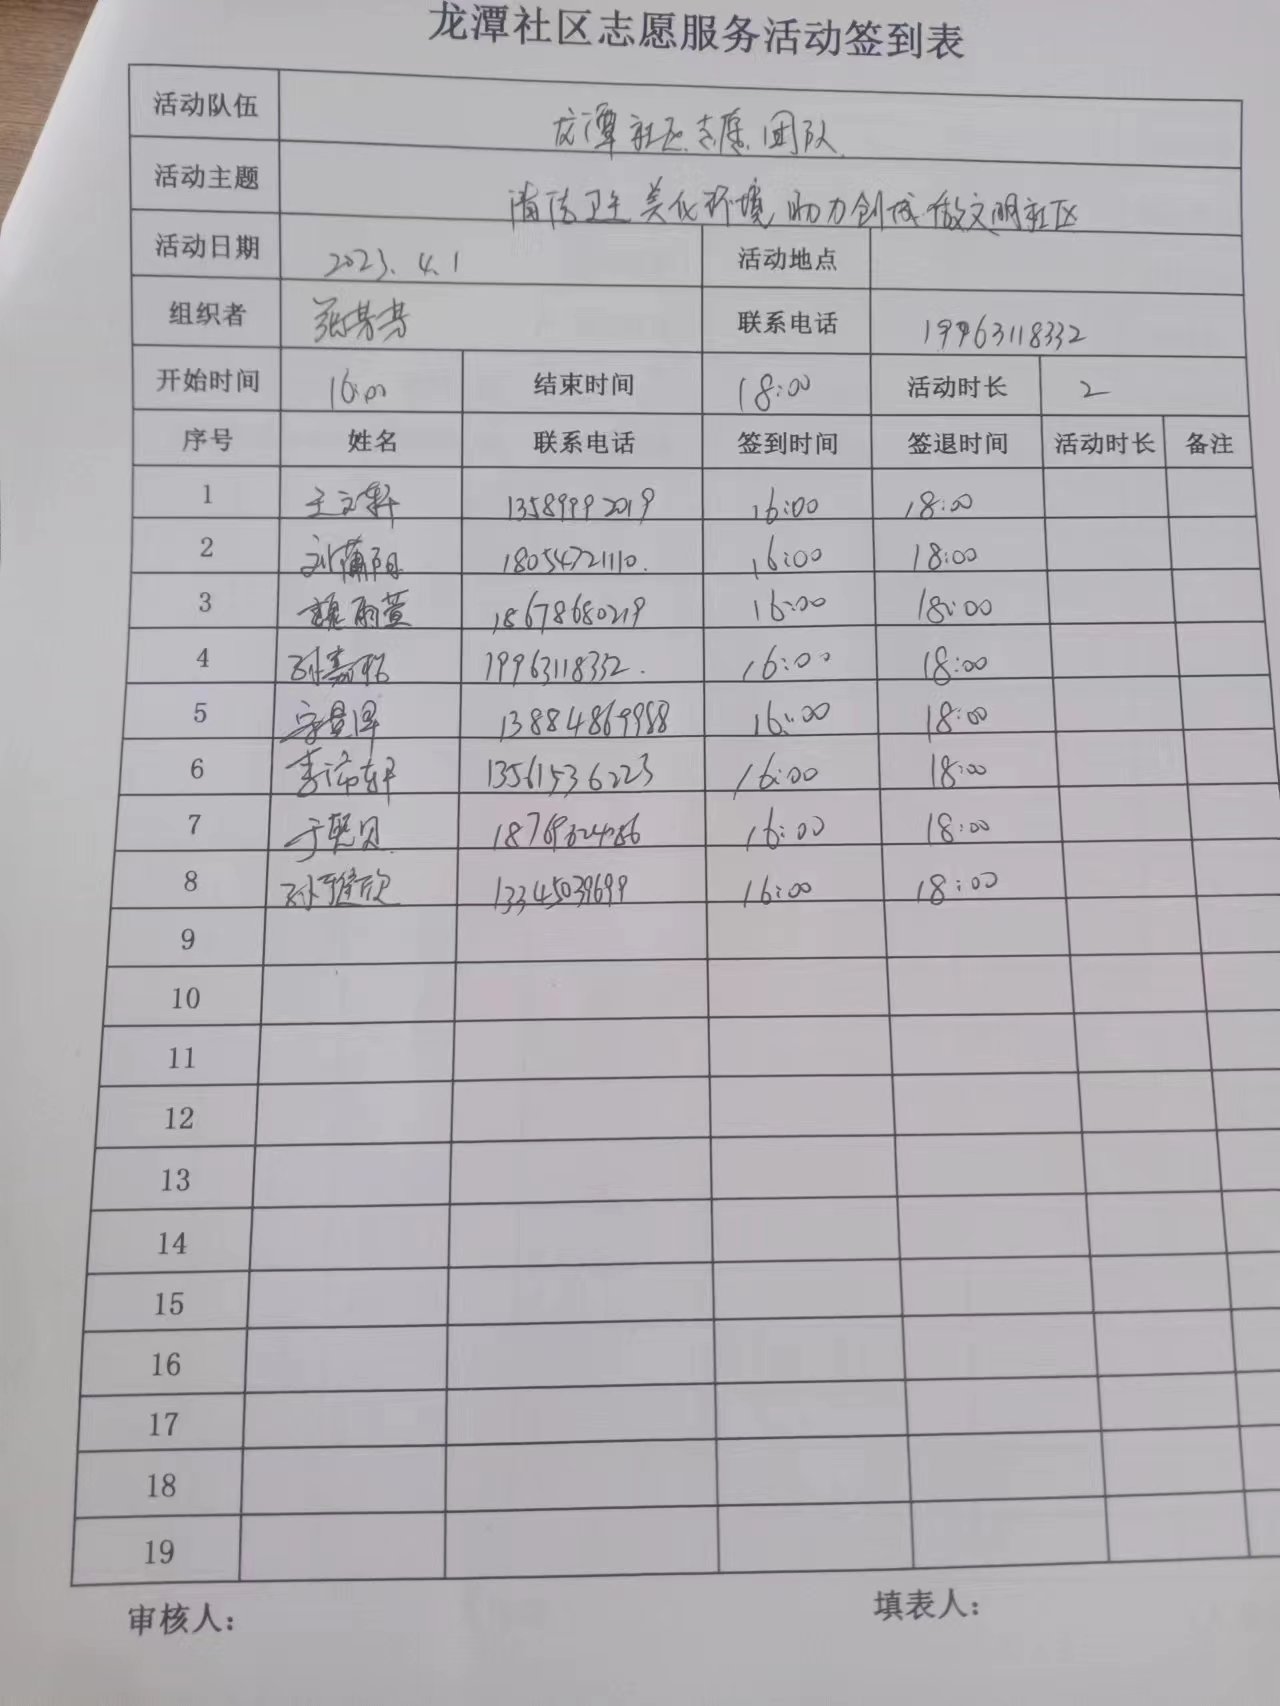 龙潭社区志愿服务活动签到表
活动队伍 龙潭社区志愿团队
活动主题 清洁卫生 美化环境 助力创城 做文明社区
活动日期 2023.4.1 活动地点
组织者 张芳芳 联系电话 19963118332
开始时间 16:00 结束时间 18:00 活动时长 2
序号 姓名 联系电话 签到时间 签退时间 活动时长 备注
1 王文轩 13589992019 16:00 18:00
2 18054721110. 16:00 18:00
3 魏雨萱 18678680219 16:00 18:00
4 19963118332. 16:00 18:00
5 13884869988 16:00 18:00
6 13561536223 16:00 18:00
7 16:00 18:00
8 13345039699 16:00 18:00
9
10
11
12
13
14
15
16
17
18
19
审核人： 填表人：